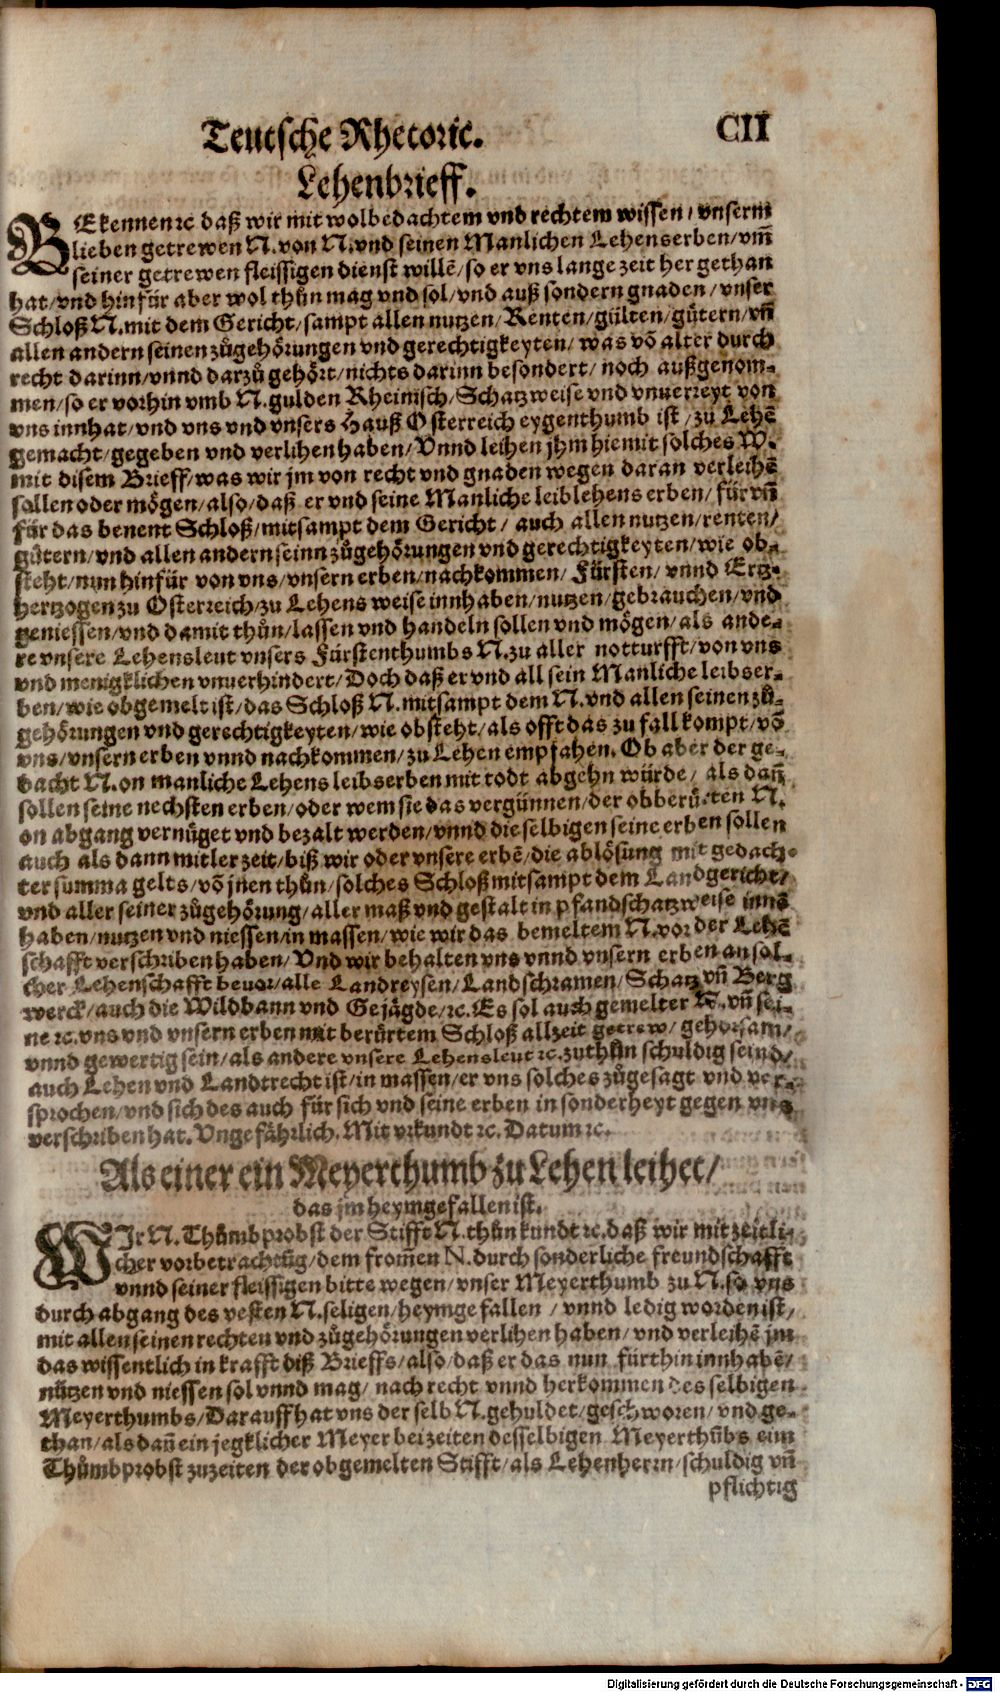 Teutsche Rhetoric. CII
Lehenbrieff.
BEkennen ꝛc daß wir mit wolbedachtem vnd rechtem wissen / vnserm
lieben getrewen N. von N. vnd seinen Manlichen Lehenserben / vm̃
seiner getrewen fleissigen dienst willẽ / so er vns lange zeit her gethan
hat / vnd hinfür aber wol thůn mag vnd sol / vnd auß sondern gnaden / vnser
Schloß N. mit dem Gericht / sampt allen nutzen / Renten / gülten / gütern / vñ
allen andern seinen zůgehörungen vnd gerechtigkeyten / was võ alter durch
recht darinn / vnnd darzů gehört / nichts darinn besondert / noch außgenom-
men / so er vorhin vmb N. gulden Rheinisch / Schatzweise vnd vnuerreyt von
vns innhat / vnd vns vnd vnsers Hauß Osterreich eygenthumb ist / zu Lehẽ
gemacht / gegeben vnd verlihen haben / Vnnd leihen jhm hiemit solches W.
mit disem Brieff / was wir jm von recht vnd gnaden wegen daran verleihẽ
sollen oder mögen / also / daß er vnd seine Manliche leiblehens erben / für vñ
für das benent Schloß / mitsampt dem Gericht / auch allen nutzen / renten /
gütern / vnd allen andern seinn zůgehörungen vnd gerechtigkeyten / wie ob-
steht / nun hinfür von vns / vnsern erben / nachkommen / Fürsten / vnnd Ertz-
hertzogen zu Osterreich / zu Lehens weise innhaben / nutzen / gebrauchen / vnd
geniessen / vnd damit thůn / lassen vnd handeln sollen vnd mögen / als ande-
re vnsere Lehensleut vnsers Fürstenthumbs N. zu aller notturfft / von vns
vnd menigklichen vnuerhindert / Doch daß er vnd all sein Manliche leibser-
ben / wie obgemelt ist / das Schloß N. mitsampt dem N. vnd allen seinen zů-
gehörungen vnd gerechtigkeyten / wie obsteht / als offt das zu fall kompt / võ
vns / vnsern erben vnnd nachkommen / zu Lehen empfahen. Ob aber der ge-
dacht N. on manliche Lehens leibserben mit todt abgehn würde / als dañ
sollen seine nechsten erben / oder wem sie das vergünnen / der obberürten N.
on abgang vernüget vnd bezalt werden / vnnd die selbigen seine erben sollen
auch als dann mitler zeit / biß wir oder vnsere erbẽ / die ablösung mit gedach-
ter summa gelts / võ jnen thůn / solches Schloß mitsampt dem Landgericht /
vnd aller seiner zůgehörung / aller maß vnd gestalt in pfandschatzweise innẽ
haben / nutzen vnd niessen / in massen / wie wir das bemeltem N. vor der Lehẽ
schafft verschriben haben / Vnd wir behalten vns vnnd vnsern erben an sol-
cher Lehenschafft beuor / alle Landreysen / Landschramen / Schatz vñ Berg
werck / auch die Wildbann vnd Gejägde / ꝛc. Es sol auch gemelter N. vñ sei-
ne ꝛc. vns vnd vnsern erben mit berürtem Schloß allzeit getrew / gehorsam /
vnnd gewertig sein / als andere vnsere Lehensleut ꝛc. zuthůn schuldig seind /
auch Lehen vnd Landtrecht ist / in massen / er vns solches zůgesagt vnd ver-
sprochen / vnd sich des auch für sich vnd seine erben in sonderheyt gegen vns
verschriben hat. Vngefährlich. Mit vrkundt ꝛc. Datum ꝛc.
Als einer ein Meyerthumb zu Lehen leihet /
das jm heymgefallen ist.
WIr N. Thůmbprobst der Stifft N. thůn kundt ꝛc. daß wir mit zeitli-
cher vorbetrachtũg / dem from̃en N. durch sonderliche freundschafft
vnnd seiner fleissigen bitte wegen / vnser Meyerthumb zu N. so vns
durch abgang des vesten N. seligen / heymgefallen / vnnd ledig worden ist /
mit allen seinen rechten vnd zůgehörungen verlihen haben / vnd verleihẽ jm
das wissentlich in krafft diß Brieffs / also / daß er das nun fürthin innhabẽ /
nützen vnd niessen sol vnnd mag / nach recht vnnd herkommen des selbigen
Meyerthumbs / Darauff hat vns der selb N. gehuldet / geschworen / vnd ge-
than / als dañ ein jegklicher Meyer bei zeiten desselbigen Meyerthũbs eim
Thůmbprobst zuzeiten der obgemelten Stifft / als Lehenherrn / schuldig vñ
pflichtig
Digitalisierung gefördert durch die Deutsche Forschungsgemeinschaft - DFG